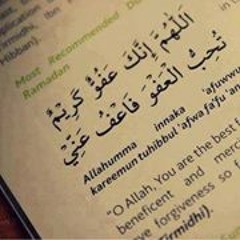 (Tirmidhi, Ibn
Hibban).
Most Recommended Du
Ramadan
اَللّٰهُمَّ اِنَّكَ عَفُوٌّ كَرِيْمٌ
تُحِبُّ الْعَفْوَ فَاعْفُ عَنِّيْ
Allahumma innaka 'afuwwu
kareemun tuhibbul 'afwa fa'fu 'an
"O Allah, You are the best f
beneficent and merc
ve forgiveness so f
irmidhi).